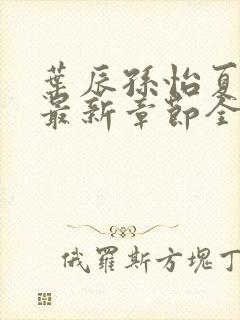 葉辰孫怡夏
最新章節全
俄羅斯方塊丁